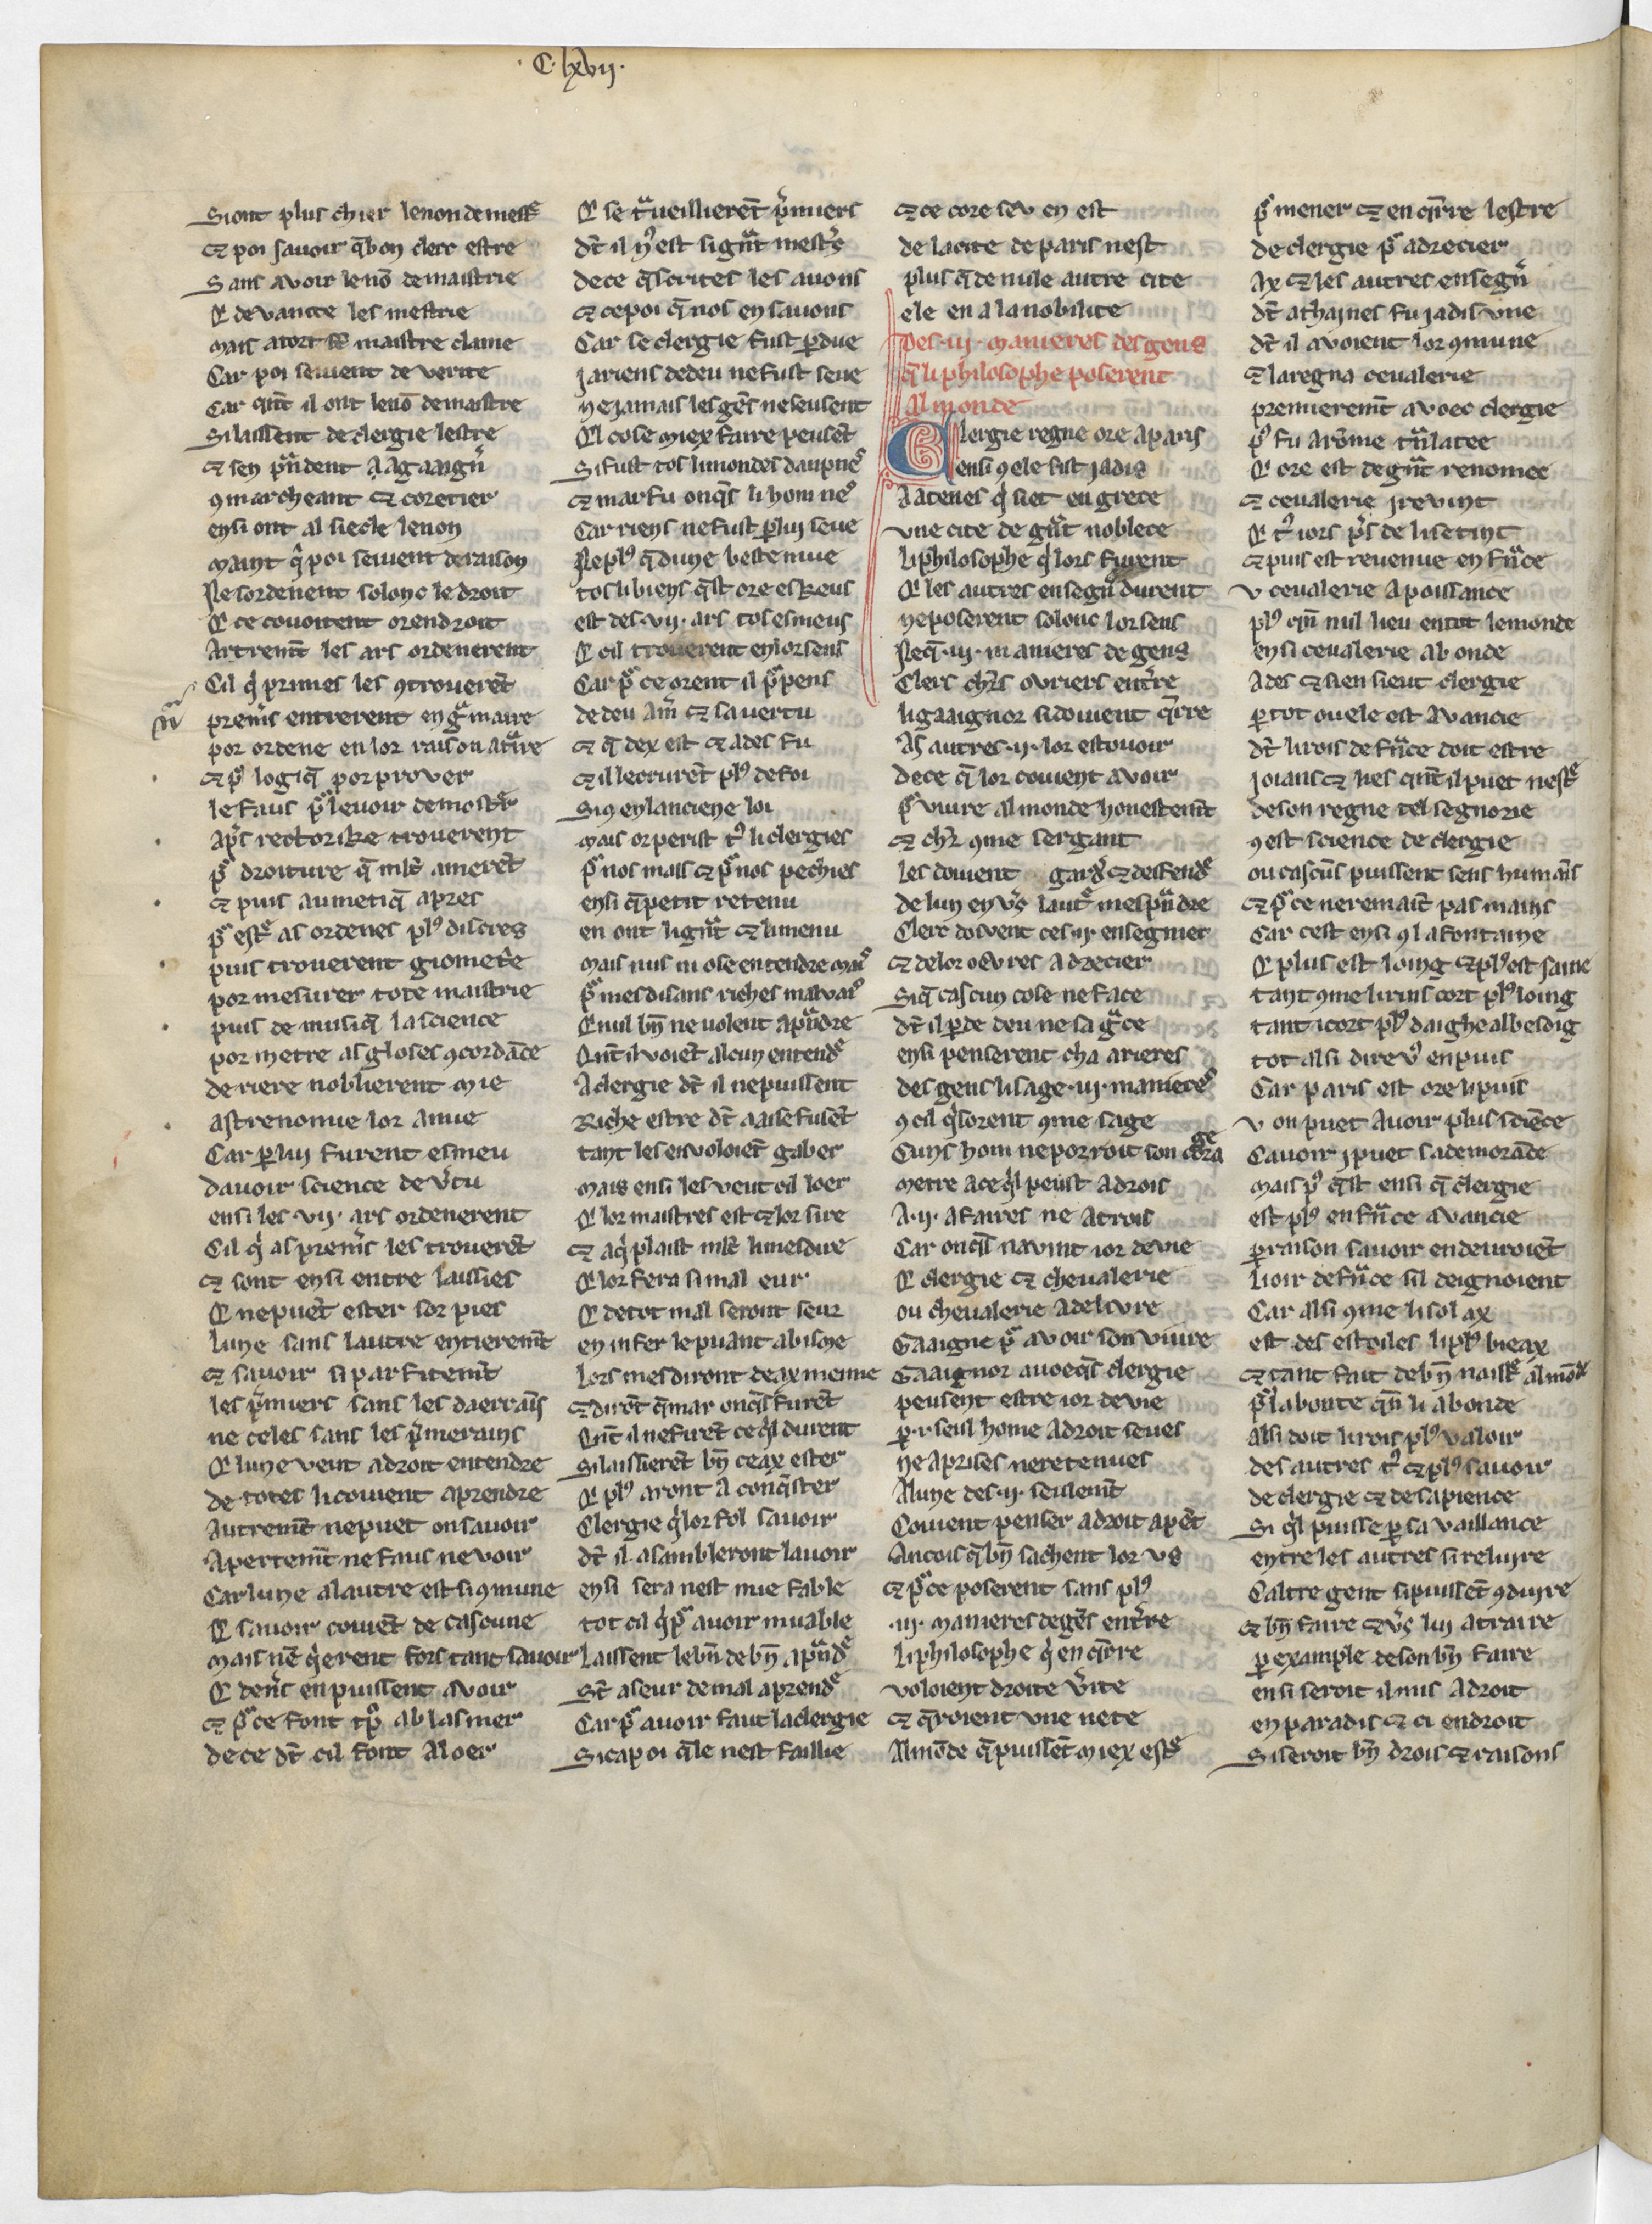 C·lxvij·
Si ont plus chier le non de mestˢ
⁊ poi savoir q̄ bon clerc estre
Sans avoir le nō de maistrie
Q̄ devantre les mestrie
mais a tort maistre claime
Car poi sevent de verite
Car qn̄t il ont le nō de maistre
Si laissent de clergie lestre
⁊ sen pͣndent a agaaignͥ
ꝯ marcheant ⁊ coretier
ensi ont al siecle le non
maint qͥ poi sevent de raison
Ne sordenent solonc le droit
Q̄ ce covoitent orendroit
Autremt̄ les ars ordenerent
Cil qͥ primes les ꝯtroverēt
premͥs entrerent en gͣmaire
por ordene en lor raison atͣire
⁊ pͦ logiq̄ por prover
le faus pͦ le voir demostͤr
apͤs rectorike troverent
pͦ droiture q̄ ml̄t amerēt
⁊ puis aumetiq̄ apres
pͦ estͤ as ordenes plꝰ discres
puis troverent giometͥe
por mesurer tote maistrie
puis de musiq̄ la science
por metre as gloses ꝯcordāce
deriere noblierent mie
astrenomie lor amie
Car ꝑ lui furent esmeu
davoir science de vͤtu
ensi les ·vij· ars ordenerent
Cil qͥ as premͥs les troverēt
⁊ sont ensi entre laissies
Q̄ ne puēt ester sor pies
lune sans lautre entieremt̄
⁊ savoir si parfitemt̄
les pͥmiers sans les daerrāis
ne celes sans les pͥmerains
Q̄ lune veut adroit entendre
de totes li covient aprendre
Autremt̄ ne puet on savoir
Apertemt̄ ne faus ne voir
Car lune a lautre est si ꝯmune
Q̄ savoir coviēt de cascune
mais nē qͥerent fors tant savoir
Q̄ denͥs en puissent avoir
⁊ pͦ ce font tͦp ablasmer
de ce dt̄ cil font aloer
Q̄ se tͣveillierēt pͥmiers
dt̄ il nͦ est si gͣnt mestͥs
de ce q̄ scrites les avons
⁊ ce poi q̄ nos en savons
Car se clergie fust ꝑdue
ja riens de deu ne fust seue
ne jamais les gēs ne seussent
Q̄l cose miex faire peusēt
Si fust tos li mondes daupnͤs
⁊ mar fu onqͣs li hom nͤs
Car riens ne fust ꝑ lui seue
Ne plꝰ q̄ dune beste mue
tos li biens q̄st ore es keus
est des ·vij· ars tos esmeus
Q̄ cil troverent en lor sens
Car pͦ ce orent il pͦpens
de deu amͥ ⁊ sa vertu
⁊ q̄ dex est ⁊ ades fu
⁊ il lecrurēt plꝰ de foi
Siꝯ en lanciene loi
mais or perist tͦ li clergies
pͦ nos mals ⁊ pͦ nos pechies
ensi q̄ petit retenu
en ont li gͣnt ⁊ li menu
mais nus ni ose entendre maiͤs
pͦ mesdisans riches malvaiͤs
Q̄ nul bn̄ ne volent apͣndre
Qn̄t il voiēt alcun entendͤ
A clergie dt̄ il ne puissent
Riche estre dt̄ aaise fusēt
tant les en voloiēt gaber
mais ensi les veut cil loer
Q̄ lor maistres est ⁊ lor sire
⁊ a qͥ plaist ml̄t li mesdire
Q̄ lor fera si mal eur
Q̄ de tot mal seront seur
en infer le puant abisme
lors mesdiront deax meime
⁊ dirōt q̄ mar onqͣs furēt
Qn̄t il ne firēt ce qͥl durent
Si laissierēt bn̄ ceax ester
Q̄ plꝰ aront a conqͣster
Clergie qͥl lor fol savoir
dt̄ il asambleront lavoir
ensi sera nest mie fable
tot cil qͥ pͦ avoir muable
laissent le bn̄ de bn̄ apͣndͤ
St̄ aseur de mal aprendͤ
Car pͦ avoir faut la clergie
Sica poi q̄le nest faillie
⁊ ce core seu en est
de la cite de paris nest
plus q̄ de nule autre cite
ele en a la nobilite
Des ·iij· manieres des gens
q̄ li philosophe poserent
Al monde
Clergie regne ore a paris
ensi ꝯ ele fist jadis
A atenes qͥ siet en grece
une cite de gͣnt noblece
li philosophe qͥ lors furent
Q̄ les autres ensegnͥ durent
ne poserent solonc lor sens
Ne q̄ ·iij· manieres de gens
Clers chͬs ovriers entͥre
li gaaignor si doivent qͣrre
As autres ·ij· lor estovoir
de ce q̄ lor covient avoir
pͦ vivre al monde honestemt̄
⁊ chͬ ꝯme sergant
les doivent gardͤr ⁊ desfendͤ
de lun en vͤs lautͤ mespͣndre
Clerc doivent ces ·ij· ensegnier
⁊ de lor oevres adrecier
Si q̄ cascun cose ne face
dt̄ il ꝑde deu ne sa gͣce
ensi penserent cha arieres
des gens li sage ·iij· manieres
ꝯ cil qͥ lorent ꝯme sage
Cuns hom ne porroit son corage
metre a ce qͥl peust adrois
A ·ij· afaires ne a trois
Car onqͣs navint jor de vie
Q̄ clergie ⁊ chevalerie
ou chevalerie a delivre
Gaaigne pͦ avoir son vivre
Gaaignor avoeqͣs clergie
peusent estre jor de vie
ꝑ ·i· seul home adroit seues
ne aprises ne retenues
A lune des ·ij· seulemt̄
Covient penser adroit apēt
Ancois q̄ bn̄ sachent lor us
⁊ pͦ ce poserent sans plꝰ
·iij· manieres de gēs entͥre
li philosophe qͥ en qͣrre
voloient droite vͤite
⁊ qͣroient une nete
Al mōde q̄ puissēt miex estͤ
pͦ mener ⁊ en qͣrre lestre
de clergie pͦ adrecier
Ax ⁊ les autres ensegnͥ
dt̄ athaines fu jadis une
dt̄ il avoient lor ꝯmune
⁊ la regna cevalerie
premieremt̄ avoec clergie
pͦ fu a rōme tͣnslatee
Q̄ ore est de gͣnt renomee
⁊ cevalerie i revint
Q̄ tͦ jors pͤs de li se tint
⁊ puis est revenue en frͣnce
u cevalerie a poissance
plꝰ qͥn nul lieu en tot le monde
ensi cevalerie abonde
Ades ⁊ si en sieut clergie
ꝑ tot ou ele est avancie
dt̄ li rois de frͣnce doit estre
joians ⁊ lies qn̄t il puet nestͤ
de son regne tel segnorie
ꝯ est science de clergie
ou cascūs puissent sens humāis
⁊ pͦ ce ne remaīt pas mains
Car cest ensi ꝯ la fontaine
Q̄ plus est loing ⁊ plꝰ est saine
tant ꝯme li rius cort plꝰ loing
tant i cort plꝰ daighe al besoig
tot alsi dire vͦ en puis
Car paris est ore li puis
u on puet avoir plus sciēce
Cavoir i puet sa demorāce
mais pͦ q̄st ensi q̄ clergie
est plꝰ en frͣnce avancie
ꝑ raison savoir en devroiēt
li oir de frͣnce sil deignoient
Car alsi ꝯme li solax
est des estoiles li plꝰ bieax
⁊ tant fait de bn̄ naistͤ al mōde
pͦ la bonte qͥn li abonde
Alsi doit li rois plꝰ valoir
des autres tͦ ⁊ plꝰ savoir
de clergie ⁊ de sapience
Si qͥl puisse ꝑ sa vaillance
entre les autres si reluire
Caltre gent si puissēt ꝯduire
⁊ bn̄ faire ⁊ vͤs lui atraire
ꝑ example de son bn̄ faire
ensi seroit il mis adroit
en paradis ⁊ ci endroit
Si seroit bn̄ drois ⁊ raisons